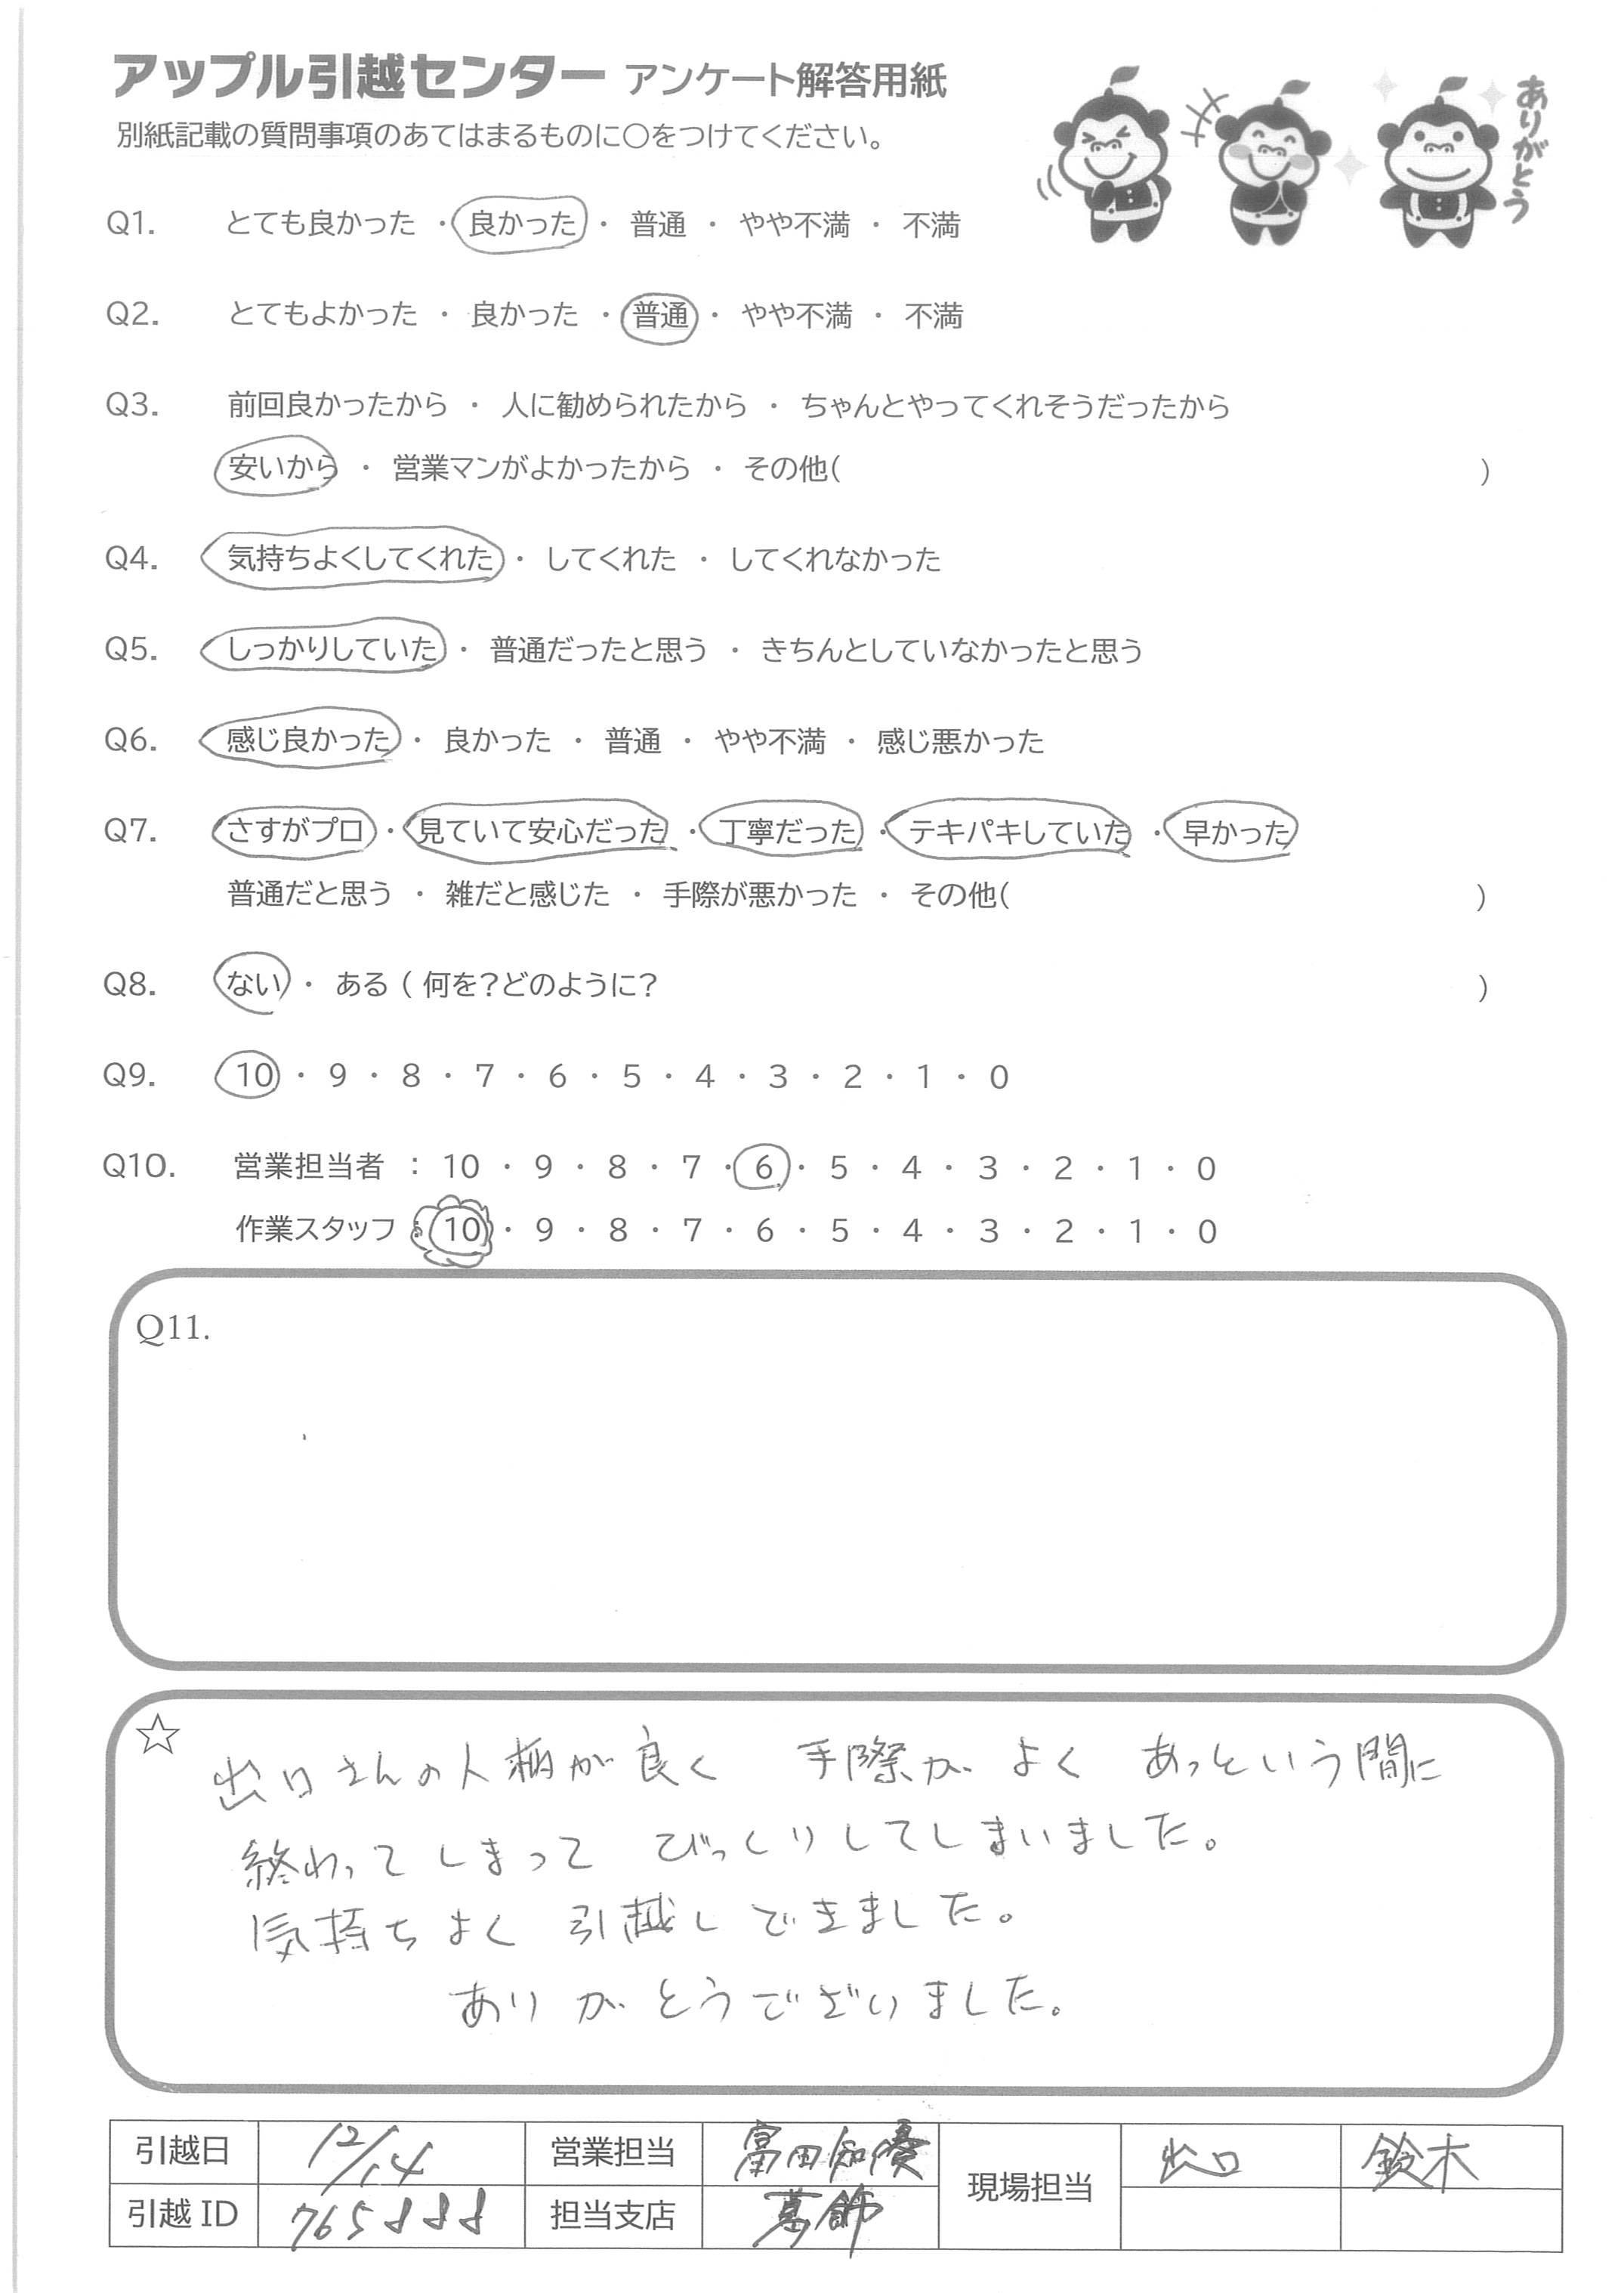 アップル引越センター アンケート解答用紙
別紙記載の質問事項のあてはまるものに〇をつけてください。
ありがとう
Q1. とても良かった ・ 良かった ・ 普通 ・ やや不満 ・ 不満
Q2. とてもよかった ・ 良かった ・ 普通 ・ やや不満 ・ 不満
Q3. 前回良かったから ・ 人に勧められたから ・ ちゃんとやってくれそうだったから
安いから ・ 営業マンがよかったから ・ その他( )
Q4. 気持ちよくしてくれた ・ してくれた ・ してくれなかった
Q5. しっかりしていた ・ 普通だったと思う ・ きちんとしていなかったと思う
Q6. 感じ良かった ・ 良かった ・ 普通 ・ やや不満 ・ 感じ悪かった
Q7. さすがプロ ・ 見ていて安心だった ・ 丁寧だった ・ テキパキしていた ・ 早かった
普通だと思う ・ 雑だと感じた ・ 手際が悪かった ・ その他( )
Q8. ない ・ ある ( 何を？どのように？ )
Q9. 10 ・ 9 ・ 8 ・ 7 ・ 6 ・ 5 ・ 4 ・ 3 ・ 2 ・ 1 ・ 0
Q10. 営業担当者 : 10 ・ 9 ・ 8 ・ 7 ・ 6 ・ 5 ・ 4 ・ 3 ・ 2 ・ 1 ・ 0
作業スタッフ : 10 ・ 9 ・ 8 ・ 7 ・ 6 ・ 5 ・ 4 ・ 3 ・ 2 ・ 1 ・ 0
Q11.
☆
出口さんの人柄が良く 手際が よく あっという間に
終わってしまって びっくりしてしまいました。
気持ちよく 引越しできました。
ありがとうございました。
引越日 12/14 営業担当 富田知優 現場担当 出口 鈴木
引越 ID 765888 担当支店 葛飾